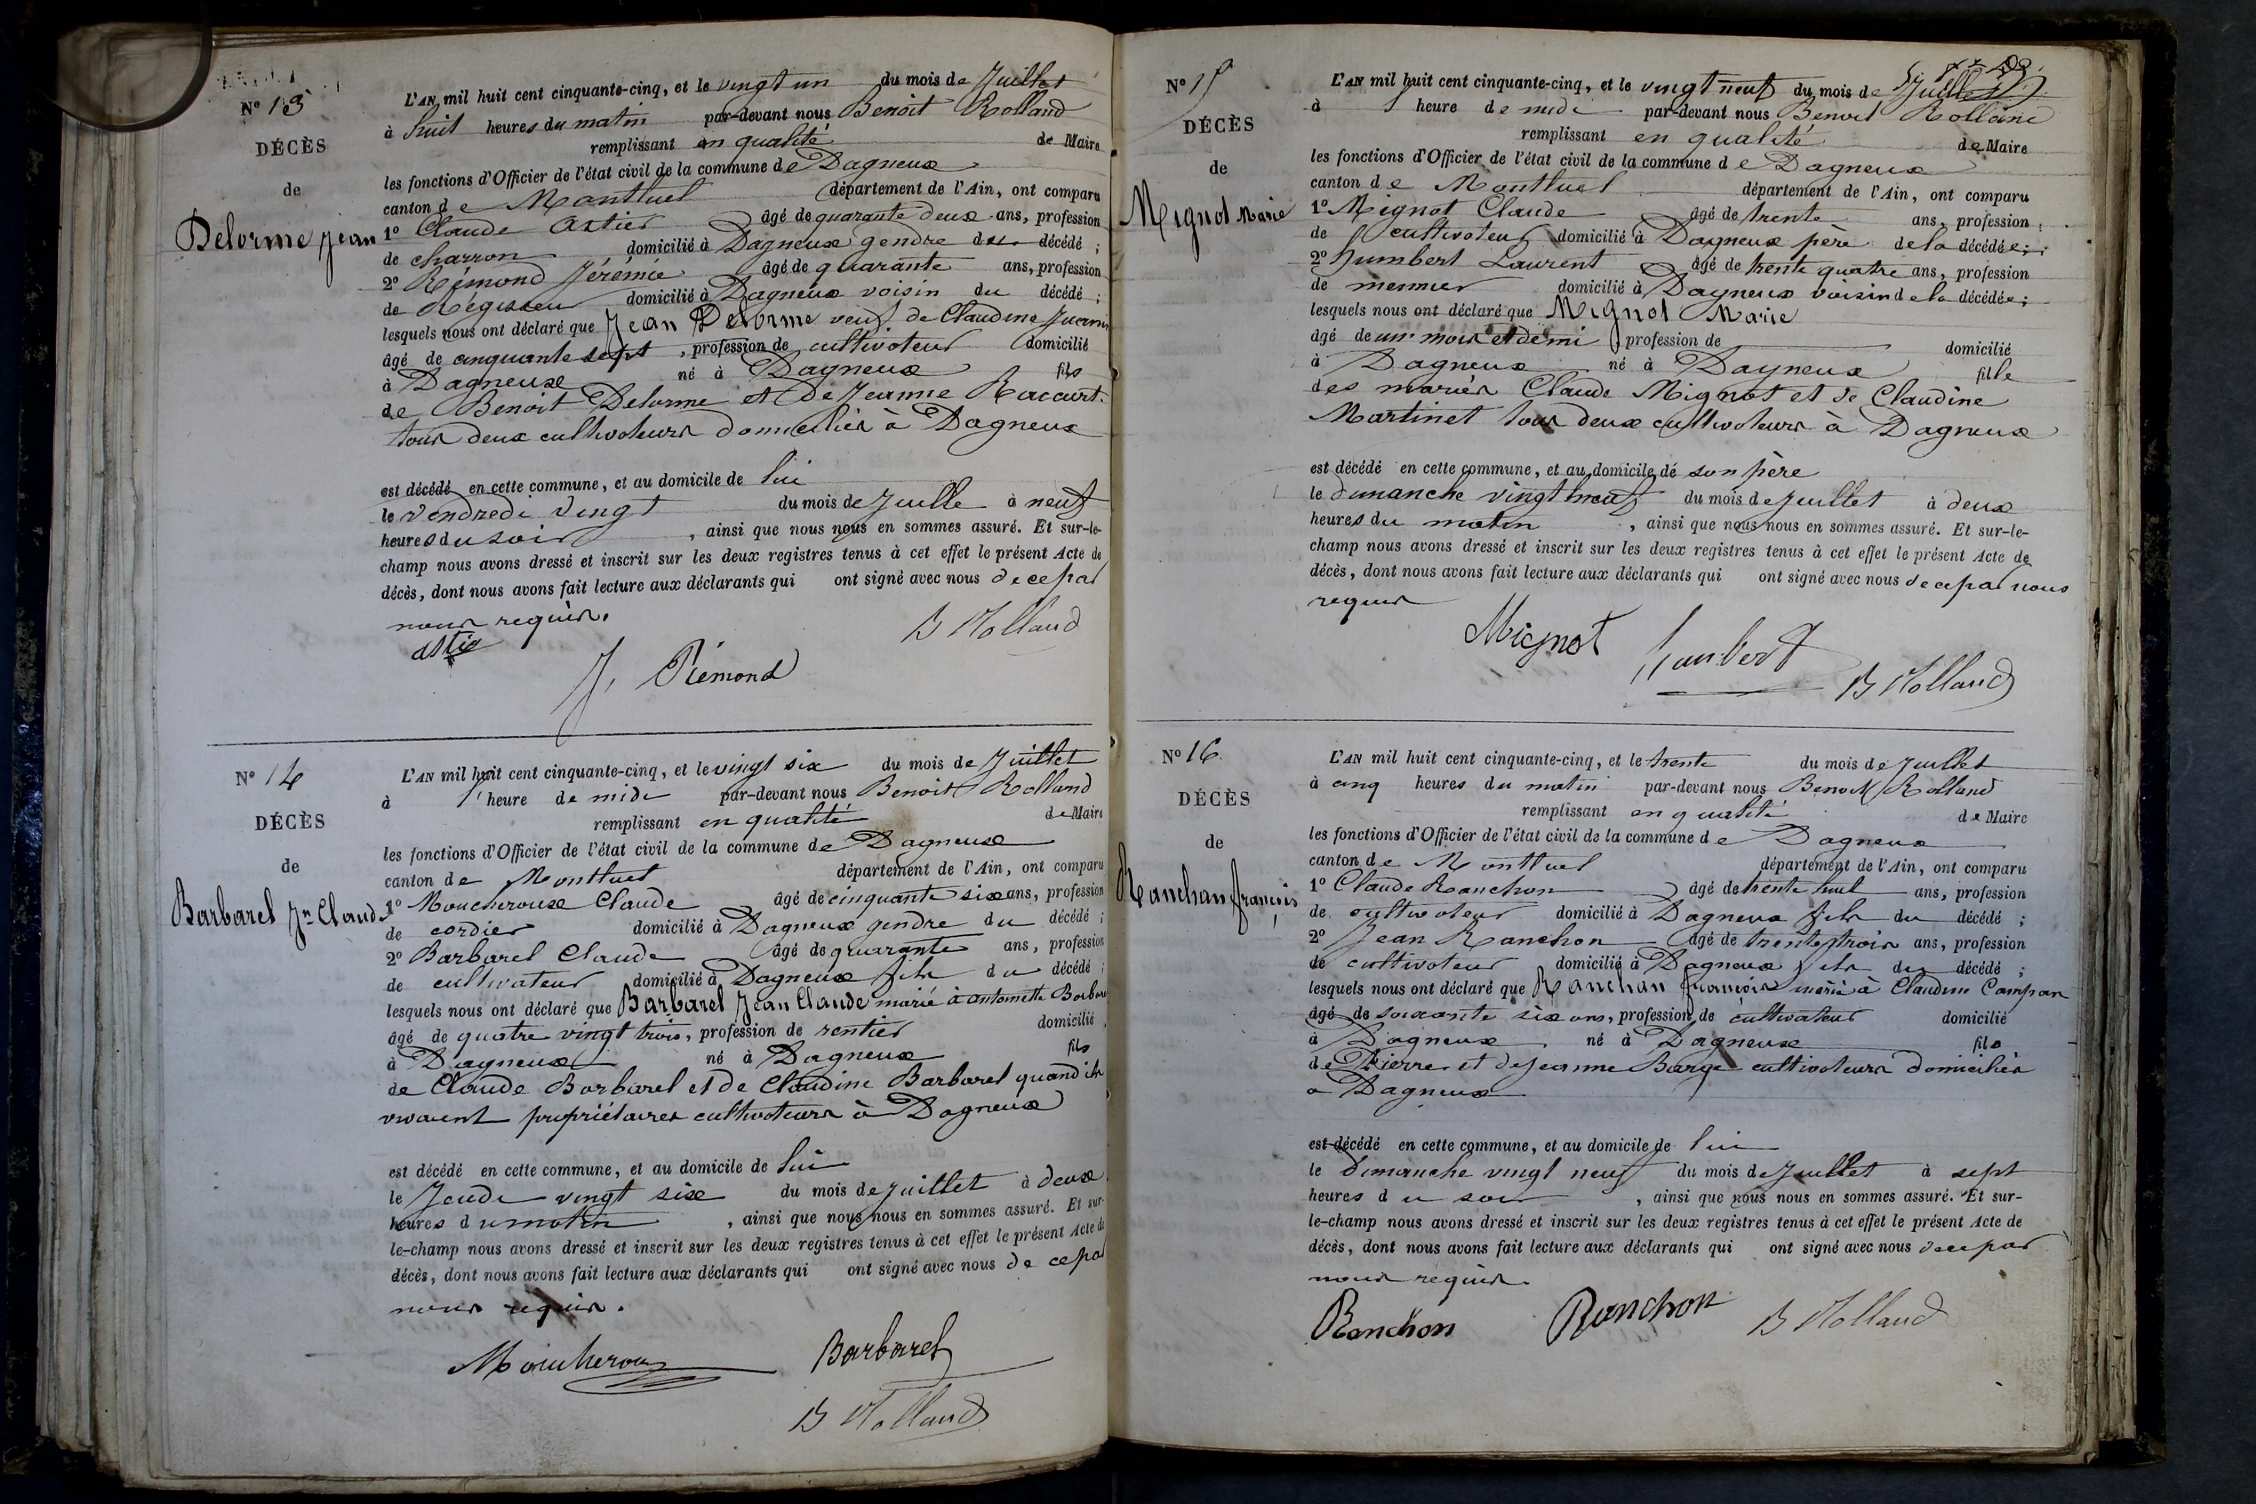 N° 13
DÉCÈS
de
Delorme Jean
L'AN mil huit cent cinquante-cinq, et le vingt un du mois de Juillet
à huit heures du matin par-devant nous Benoit Rolland
remplissant en qualité de Maire
les fonctions d'Officier de l'état civil de la commune de Dagneux
canton de Montluel département de l'Ain, ont comparu
1° Claude Astier âgé de quarante deux ans, profession
de charron domicilié à Dagneux gendre du décédé ;
2° Rémond Jérémie âgé de quarante ans, profession
de Régisseur domicilié à Dagneux voisin du décédé ;
lesquels nous ont déclaré que Jean Delorme veuf de Claudine
âgé de cinquante sept , profession de cultivateur domicilié
à Dagneux né à Dagneux fils
de Benoit Delorme et de Jeanne Racourt
tous deux cultivateurs domiciliés à Dagneux
est décédé en cette commune, et au domicile de lui
le vendredi vingt du mois de Juille à neuf
heures du soir , ainsi que nous nous en sommes assuré. Et sur-le-
champ nous avons dressé et inscrit sur les deux registres tenus à cet effet le présent Acte de
décès, dont nous avons fait lecture aux déclarants qui ont signé avec nous de ce par
nous requis.
B Rolland
J. Rémond
N° 14
DÉCÈS
de
Barbarel Jn Claude
L'AN mil huit cent cinquante-cinq, et le vingt six du mois de Juillet
à heure de midi par-devant nous Benoit Rolland
remplissant en qualité de Maire
les fonctions d'Officier de l'état civil de la commune de Dagneux
canton de Montluel département de l'Ain, ont comparu
1° Moucheroux Claude âgé de cinquante six ans, profession
de cordier domicilié à Dagneux gendre du décédé ;
2° Barbarel Claude âgé de quarante ans, profession
de cultivateur domicilié à Dagneux fils du décédé ;
lesquels nous ont déclaré que Barbarel Jean Claude marié à antoinette
âgé de quatre vingt trois, profession de rentier domicilié
à Dagneux né à Dagneux fils
de Claude Barbarel et de Claudine Barbarel quand ils
vivaient propriétaires cultivateurs à Dagneux
est décédé en cette commune, et au domicile de lui
le Jeudi vingt six du mois de Juillet à deux
heures du matin , ainsi que nous nous en sommes assuré. Et sur-
le-champ nous avons dressé et inscrit sur les deux registres tenus à cet effet le présent Acte de
décès, dont nous avons fait lecture aux déclarants qui ont signé avec nous de ce par
nous requis.
Moucheroux Barbarel
B Rolland
N° 15
DÉCÈS
de
Mignot Marie
L'AN mil huit cent cinquante-cinq, et le vingt neuf du mois de Juillet
à heure de midi par-devant nous Benoit Rolland
remplissant en qualité de Maire
les fonctions d'Officier de l'état civil de la commune de Dagneux
canton de Montluel département de l'Ain, ont comparu
1° Mignot Claude âgé de trente ans, profession
de cultivateur domicilié à Dagneux père de la décédée ;
2° humbert Laurent âgé de trente quatre ans, profession
de meunier domicilié à Dagneux voisin de la décédée ;
lesquels nous ont déclaré que Mignot Marie
âgé de un mois et demi profession de domicilié
à Dagneux né à Dagneux fille
des mariés Claude Mignot et de Claudine
Martinet tous deux cultivateurs à Dagneux
est décédé en cette commune, et au domicile de son père
le dimanche vingt neuf du mois de Juillet à deux
heures du matin , ainsi que nous nous en sommes assuré. Et sur-le-
champ nous avons dressé et inscrit sur les deux registres tenus à cet effet le présent Acte de
décès, dont nous avons fait lecture aux déclarants qui ont signé avec nous de ce par nous
requis
Mignot humbert B Rolland
N° 16
DÉCÈS
de
Ranchon françois
L'AN mil huit cent cinquante-cinq, et le trente du mois de Juillet
à cinq heures du matin par-devant nous Benoit Rolland
remplissant en qualité de Maire
les fonctions d'Officier de l'état civil de la commune de Dagneux
canton de Montluel département de l'Ain, ont comparu
1° Claude Ranchon âgé de trente huit ans, profession
de cultivateur domicilié à Dagneux fils du décédé ;
2° Jean Ranchon âgé de trente trois ans, profession
de cultivateur domicilié à Dagneux fils du décédé ;
lesquels nous ont déclaré que Ranchon françois marié à Claudine Campan
âgé de soixante six ans, profession de cultivateur domicilié
à Dagneux né à Dagneux fils
de Pierre et de Jeanne Barge cultivateurs domiciliés
a Dagneux
est décédé en cette commune, et au domicile de lui
le Dimanche vingt neuf du mois de Juillet à sept
heures du soir , ainsi que nous nous en sommes assuré. Et sur-
le-champ nous avons dressé et inscrit sur les deux registres tenus à cet effet le présent Acte de
décès, dont nous avons fait lecture aux déclarants qui ont signé avec nous de ce par
nous requis.
Ranchon Ranchon B Rolland